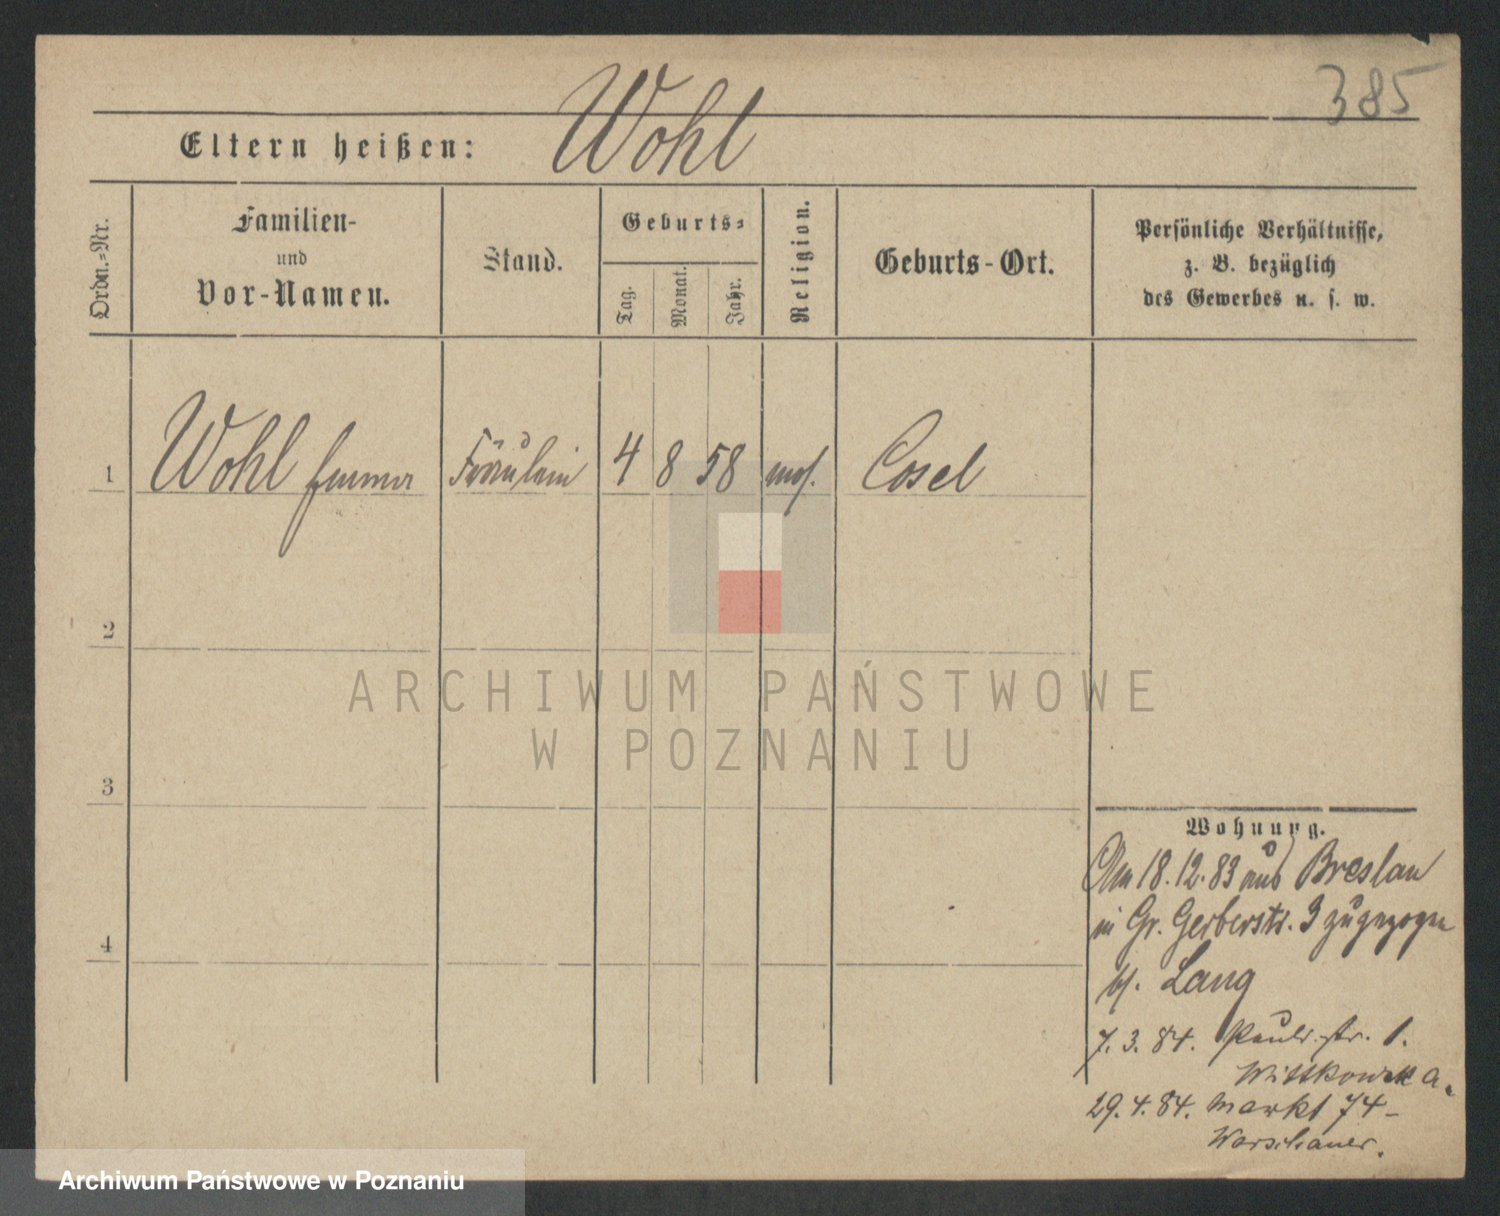 385
Eltern heißen: Wohl
Ordn.=Nr.
Familien-
und
Vor-Namen.
Stand.
Geburts=
Tag.
Monat.
Jahr.
Religion.
Geburts-Ort.
Persönliche Verhältnisse,
z. B. bezüglich
des Gewerbes u. s. w.
1 Wohl Emma Fräulein 4 8 58 mos. Cosel
2
ARCHIWUM PAŃSTWOWE
W POZNANIU
3
4
Wohnung.
Am 18.12.83 aus Breslau
in Gr. Gerberstr. 3 zugezogen
b/. Lang
7.3.84. Paulistr. 1.
Wittkowsk
29.4.84. Markt 74-
Warschauer.
Archiwum Państwowe w Poznaniu